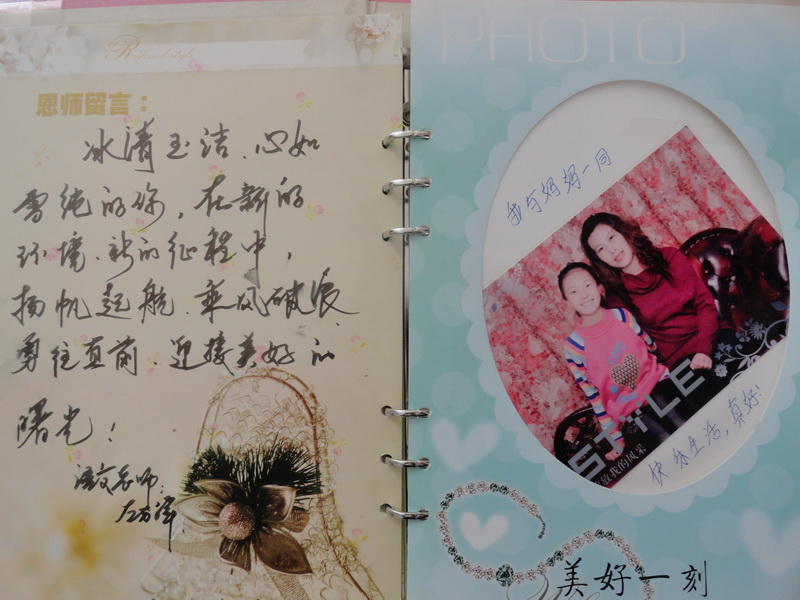 恩师留言：
冰清玉洁、心如
雪纯的你，在新的
环境、新的征程中，
扬帆起航、乘风破浪、
勇往直前、迎接美好的
曙光！
语文老师：
PHOTO
我与妈妈一同
STYLE
放我的风采
快乐生活，真好！
美好一刻